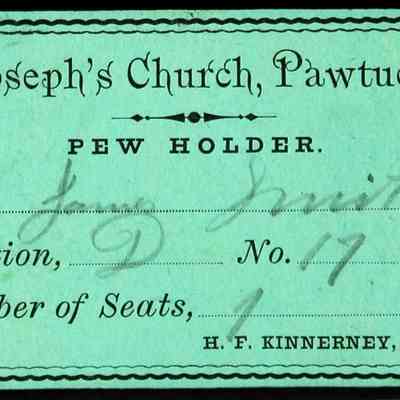 oseph's Church, Pawtuc
PEW HOLDER.
James Smit
ion, D No. 17
ber of Seats, 1
H. F. KINNERNEY,